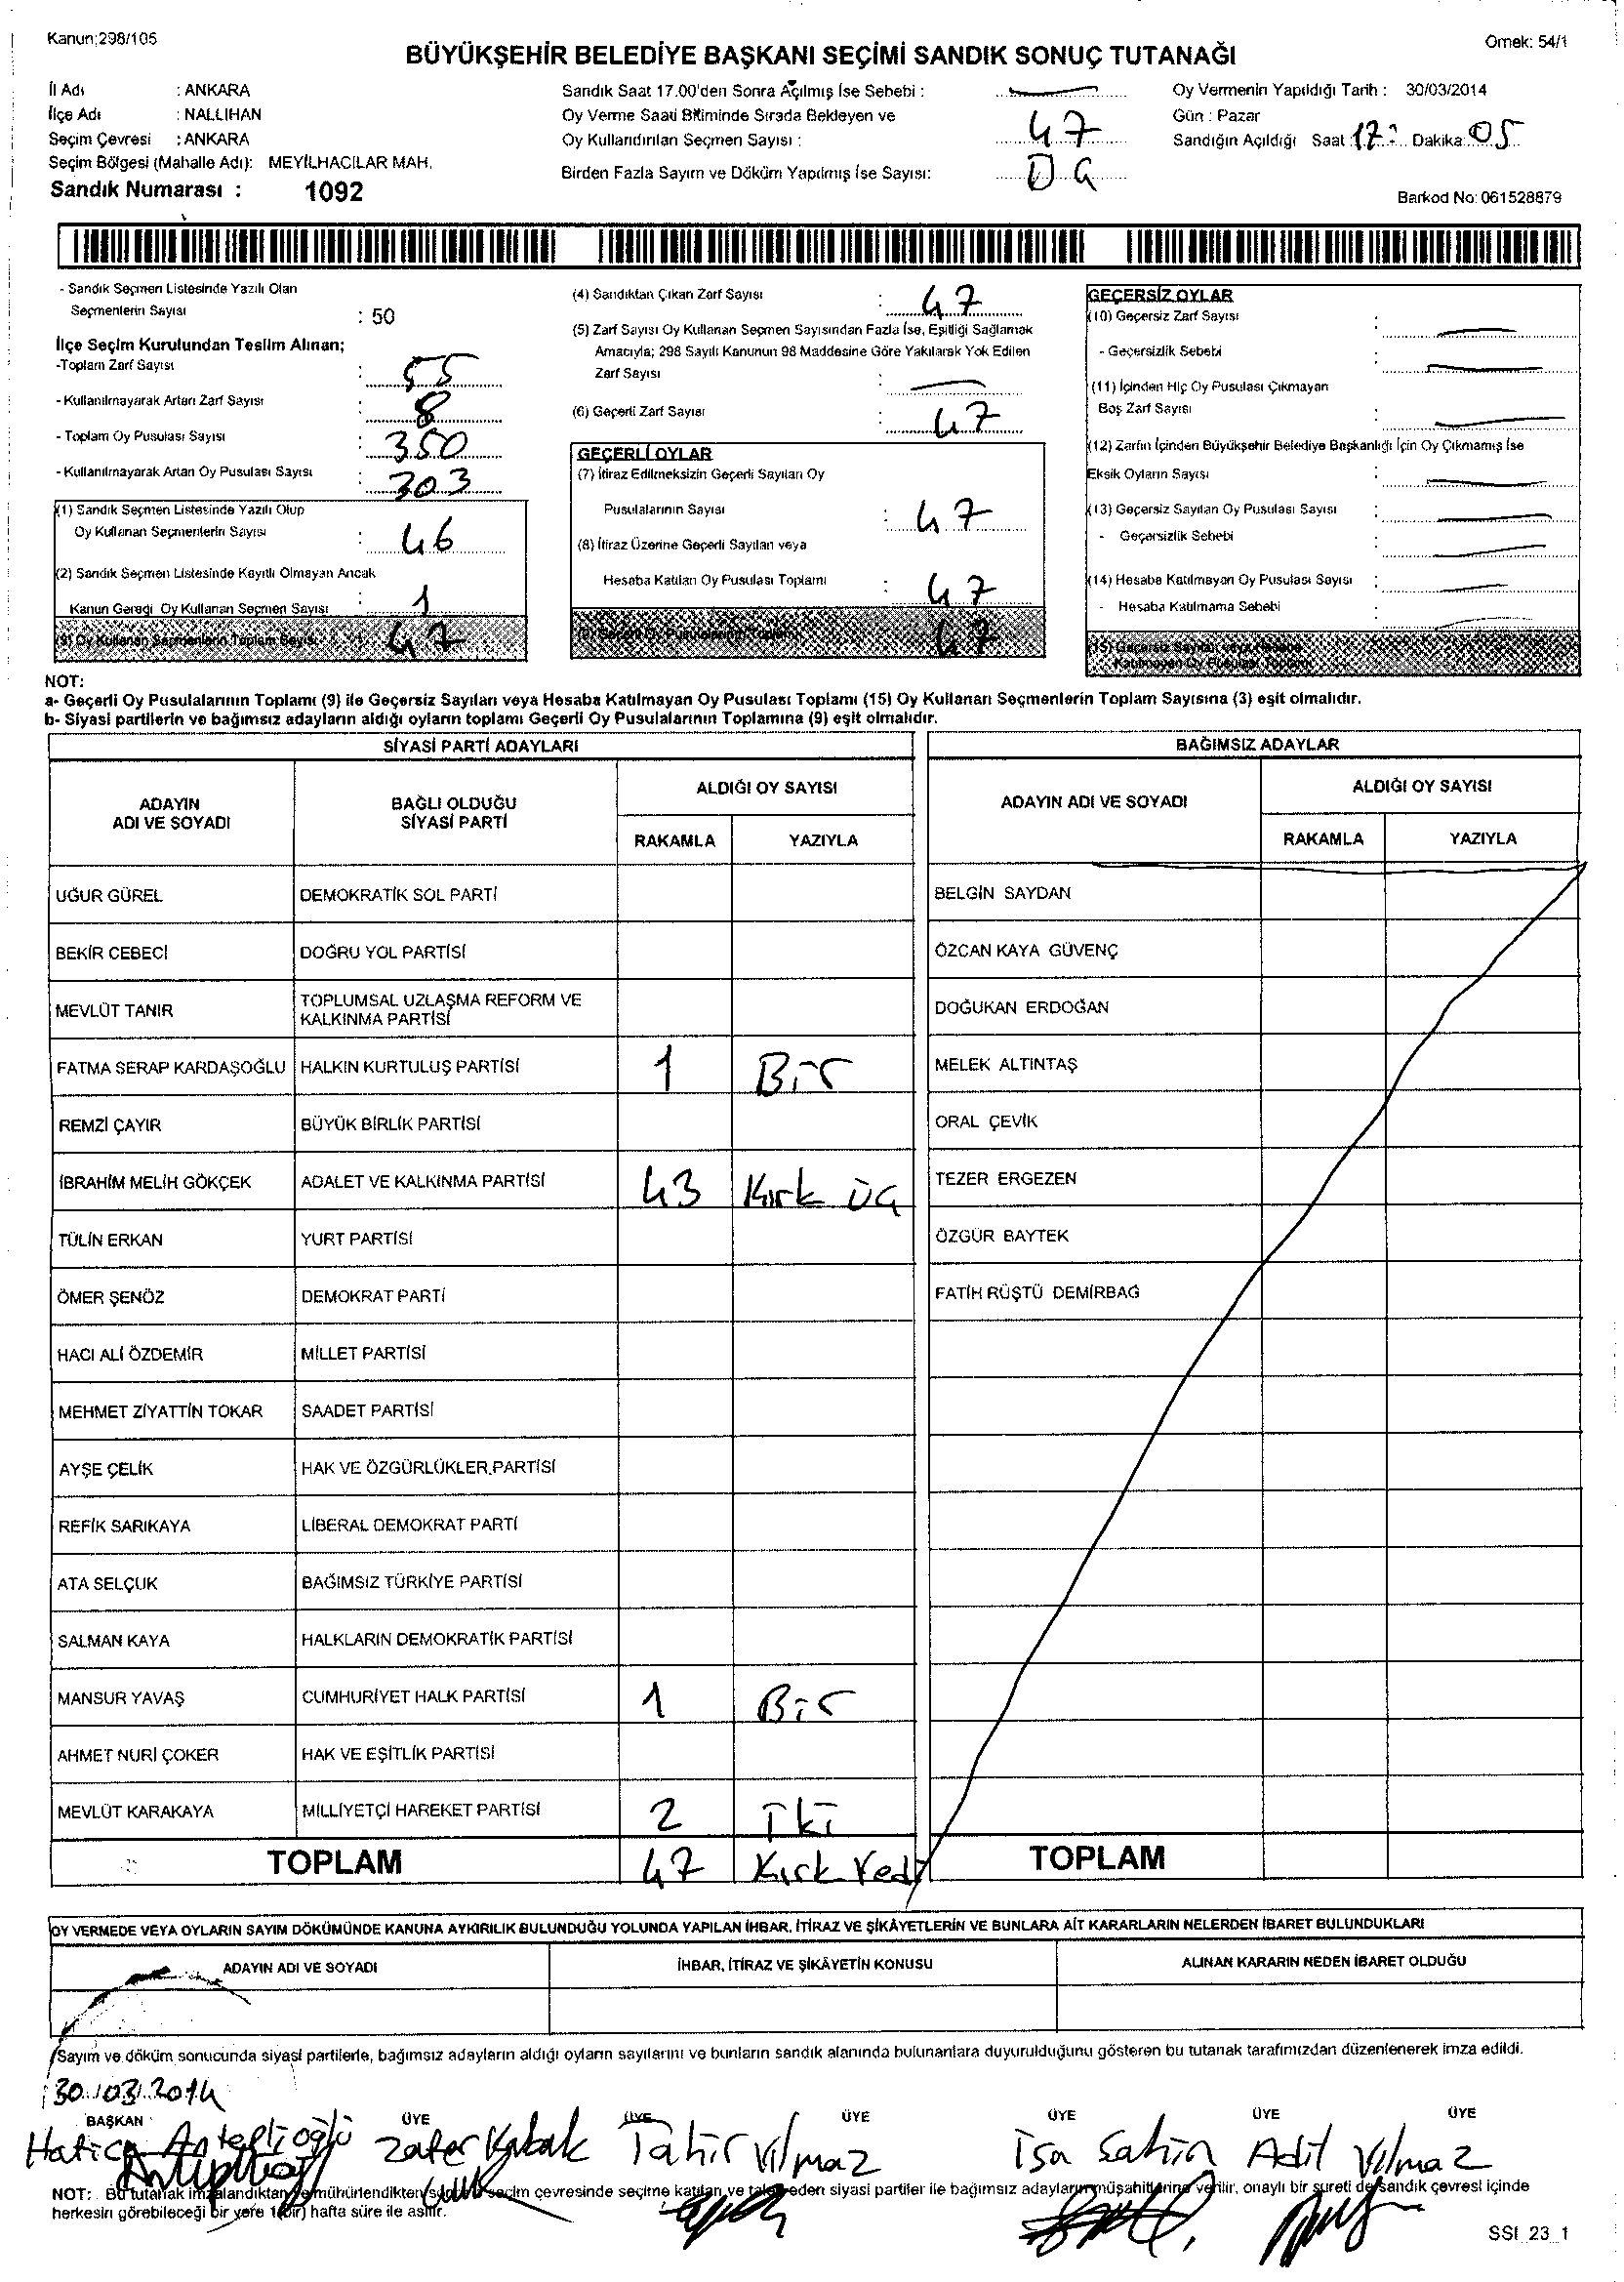 Kanun;298/105
Örnek: 54/1
BÜYÜKŞEHİR BELEDİYE BAŞKANI SEÇİMİ SANDIK SONUÇ TUTANAĞI
İl Adı : ANKARA
İlçe Adı : NALLIHAN
Seçim Çevresi : ANKARA
Seçim Bölgesi (Mahalle Adı): MEYİLHACILAR MAH.
Sandık Numarası : 1092
Sandık Saat 17.00'den Sonra Açılmış İse Sebebi :
Oy Verme Saati Bitiminde Sırada Bekleyen ve
Oy Kullandırılan Seçmen Sayısı : 47
Birden Fazla Sayım ve Döküm Yapılmış İse Sayısı:
Oy Vermenin Yapıldığı Tarih : 30/03/2014
Gün : Pazar
Sandığın Açıldığı Saat 17: Dakika: 05
Barkod No: 061528879
- Sandık Seçmen Listesinde Yazılı Olan
Seçmenlerin Sayısı : 50
İlçe Seçim Kurulundan Teslim Alınan;
-Toplam Zarf Sayısı : 55
- Kullanılmayarak Artan Zarf Sayısı : 8
- Toplam Oy Pusulası Sayısı : 350
- Kullanılmayarak Artan Oy Pusulası Sayısı : 303
(1) Sandık Seçmen Listesinde Yazılı Olup
Oy Kullanan Seçmenlerin Sayısı : 46
(2) Sandık Seçmen Listesinde Kayıtlı Olmayan Ancak
Kanun Gereği Oy Kullanan Seçmen Sayısı : 1
(3) Oy Kullanan Seçmenlerin Toplam Sayısı : 47
(4) Sandıktan Çıkan Zarf Sayısı : 47
(5) Zarf Sayısı Oy Kullanan Seçmen Sayısından Fazla İse, Eşitliği Sağlamak
Amacıyla; 298 Sayılı Kanunun 98 Maddesine Göre Yakılarak Yok Edilen
Zarf Sayısı :
(6) Geçerli Zarf Sayısı : 47
GEÇERLİ OYLAR
(7) İtiraz Edilmeksizin Geçerli Sayılan Oy
Pusulalarının Sayısı : 47
(8) İtiraz Üzerine Geçerli Sayılan veya
Hesaba Katılan Oy Pusulası Toplamı : 47
(9) Geçerli Oy Pusulalarının Toplamı 47
GEÇERSİZ OYLAR
(10) Geçersiz Zarf Sayısı :
- Geçersizlik Sebebi :
(11) İçinden Hiç Oy Pusulası Çıkmayan
Boş Zarf Sayısı :
(12) Zarfın İçinden Büyükşehir Belediye Başkanlığı İçin Oy Çıkmamış İse
Eksik Oyların Sayısı :
(13) Geçersiz Sayılan Oy Pusulası Sayısı :
- Geçersizlik Sebebi :
(14) Hesaba Katılmayan Oy Pusulası Sayısı :
- Hesaba Katılmama Sebebi :
(15) Geçersiz Sayılan veya Hesaba
Katılmayan Oy Pusulası Toplamı
NOT:
a- Geçerli Oy Pusulalarının Toplamı (9) ile Geçersiz Sayılan veya Hesaba Katılmayan Oy Pusulası Toplamı (15) Oy Kullanan Seçmenlerin Toplam Sayısına (3) eşit olmalıdır.
b- Siyasi partilerin ve bağımsız adayların aldığı oyların toplamı Geçerli Oy Pusulalarının Toplamına (9) eşit olmalıdır.
SİYASİ PARTİ ADAYLARI
ADAYIN
ADI VE SOYADI
BAĞLI OLDUĞU
SİYASİ PARTİ
ALDIĞI OY SAYISI
RAKAMLA YAZIYLA
UĞUR GÜREL DEMOKRATİK SOL PARTİ
BEKİR CEBECİ DOĞRU YOL PARTİSİ
MEVLÜT TANIR TOPLUMSAL UZLAŞMA REFORM VE
KALKINMA PARTİSİ
FATMA SERAP KARDAŞOĞLU HALKIN KURTULUŞ PARTİSİ 1 Bir
REMZİ ÇAYIR BÜYÜK BİRLİK PARTİSİ
İBRAHİM MELİH GÖKÇEK ADALET VE KALKINMA PARTİSİ 43 Kırk üç
TÜLİN ERKAN YURT PARTİSİ
ÖMER ŞENÖZ DEMOKRAT PARTİ
HACI ALİ ÖZDEMİR MİLLET PARTİSİ
MEHMET ZİYATTİN TOKAR SAADET PARTİSİ
AYŞE ÇELİK HAK VE ÖZGÜRLÜKLER PARTİSİ
REFİK SARIKAYA LİBERAL DEMOKRAT PARTİ
ATA SELÇUK BAĞIMSIZ TÜRKİYE PARTİSİ
SALMAN KAYA HALKLARIN DEMOKRATİK PARTİSİ
MANSUR YAVAŞ CUMHURİYET HALK PARTİSİ 1 Bir
AHMET NURİ ÇOKER HAK VE EŞİTLİK PARTİSİ
MEVLÜT KARAKAYA MİLLİYETÇİ HAREKET PARTİSİ 2 İki
TOPLAM 47 Kırk Yedi
BAĞIMSIZ ADAYLAR
ADAYIN ADI VE SOYADI
ALDIĞI OY SAYISI
RAKAMLA YAZIYLA
BELGİN SAYDAN
ÖZCAN KAYA GÜVENÇ
DOĞUKAN ERDOĞAN
MELEK ALTINTAŞ
ORAL ÇEVİK
TEZER ERGEZEN
ÖZGÜR BAYTEK
FATİH RÜŞTÜ DEMİRBAĞ
TOPLAM
OY VERMEDE VEYA OYLARIN SAYIM DÖKÜMÜNDE KANUNA AYKIRILIK BULUNDUĞU YOLUNDA YAPILAN İHBAR, İTİRAZ VE ŞİKÂYETLERİN VE BUNLARA AİT KARARLARIN NELERDEN İBARET BULUNDUKLARI
ADAYIN ADI VE SOYADI İHBAR, İTİRAZ VE ŞİKÂYETİN KONUSU ALINAN KARARIN NEDEN İBARET OLDUĞU
Sayım ve döküm sonucunda siyasi partilerle, bağımsız adayların aldığı oyların sayılarını ve bunların sandık alanında bulunanlara duyurulduğunu gösteren bu tutanak tarafımızdan düzenlenerek imza edildi.
30.03.2014
BAŞKAN ÜYE ÜYE ÜYE ÜYE ÜYE ÜYE
Hatice Zafer Kabak Tahir Yılmaz İsa Şahin Adil Yılmaz
NOT: Bu tutanak imzalandıktan ve mühürlendikten sonra seçim çevresinde seçime katılan ve talep eden siyasi partiler ile bağımsız adayların müşahitlerine verilir, onaylı bir sureti de sandık çevresi içinde
herkesin görebileceği bir yere 1 (bir) hafta süre ile asılır.
SSI_23_1